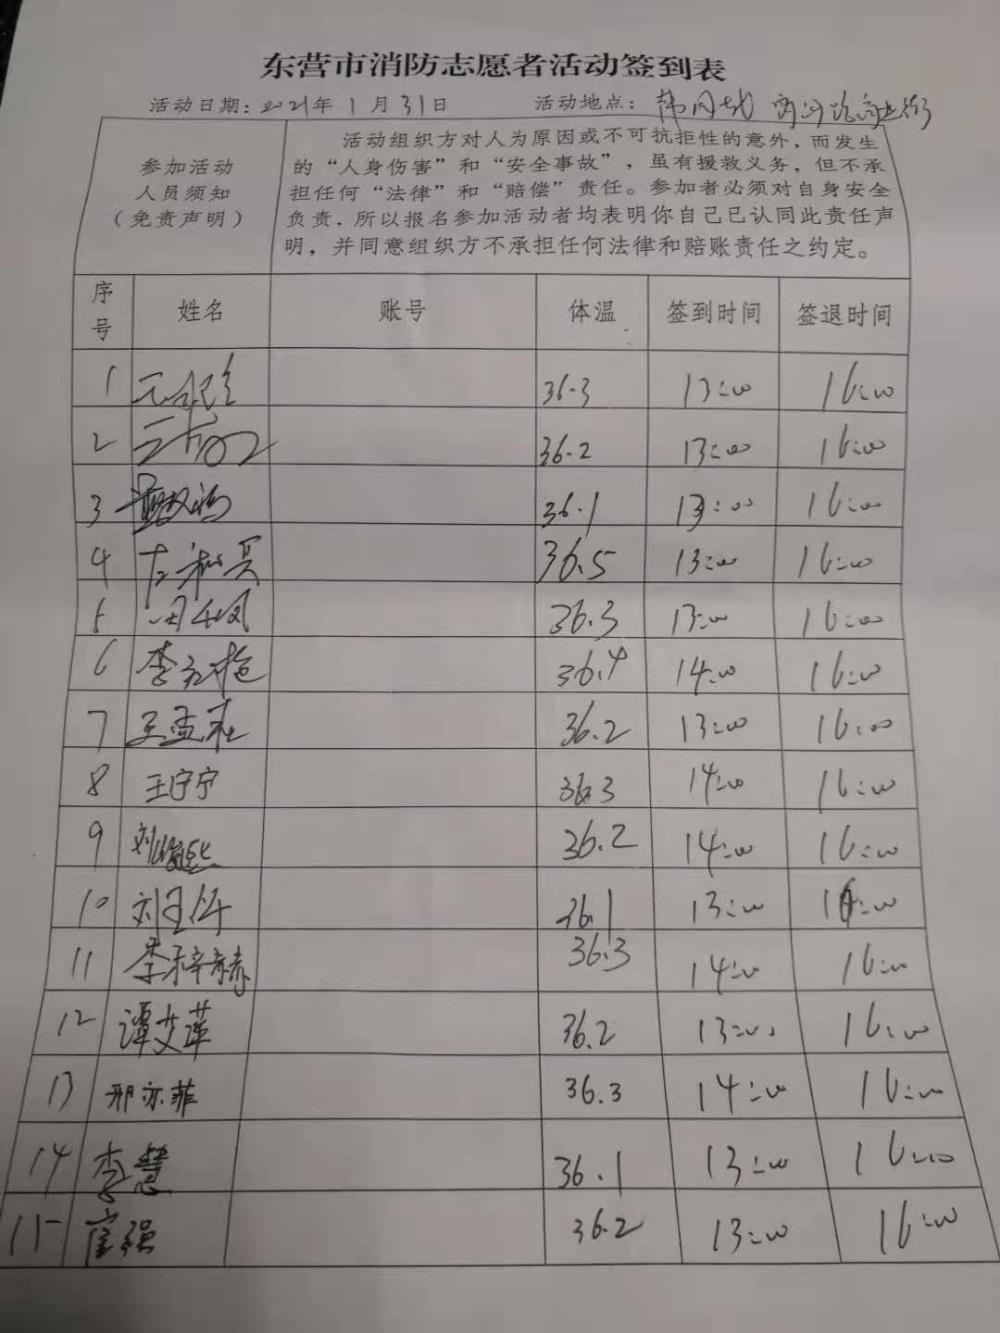 东营市消防志愿者活动签到表
活动日期：2021年1月31日 活动地点：
参加活动
人员须知
（免责声明）
活动组织方对人为原因或不可抗拒性的意外，而发生
的“人身伤害”和“安全事故”，虽有援救义务，但不承
担任何“法律”和“赔偿”责任。参加者必须对自身安全
负责，所以报名参加活动者均表明你自己已认同此责任声
明，并同意组织方不承担任何法律和赔账责任之约定。
序号 姓名 账号 体温 签到时间 签退时间
1 36.3 13:00 16:00
2 36.2 13:00 16:00
3 36.1 13:00 16:00
4 36.5 13:00 16:00
5 36.3 13:00 16:00
6 李 36.4 14:00 16:00
7 王孟 36.2 13:00 16:00
8 王宁宁 36.3 14:00 16:00
9 刘 36.2 14:00 16:00
10 刘 36.1 13:00 16:00
11 李梓赫 36.3 14:00 16:00
12 谭艾莲 36.2 13:00 16:00
13 邢亦菲 36.3 14:00 16:00
14 李慧 36.1 13:00 16:00
15 强 36.2 13:00 16:00